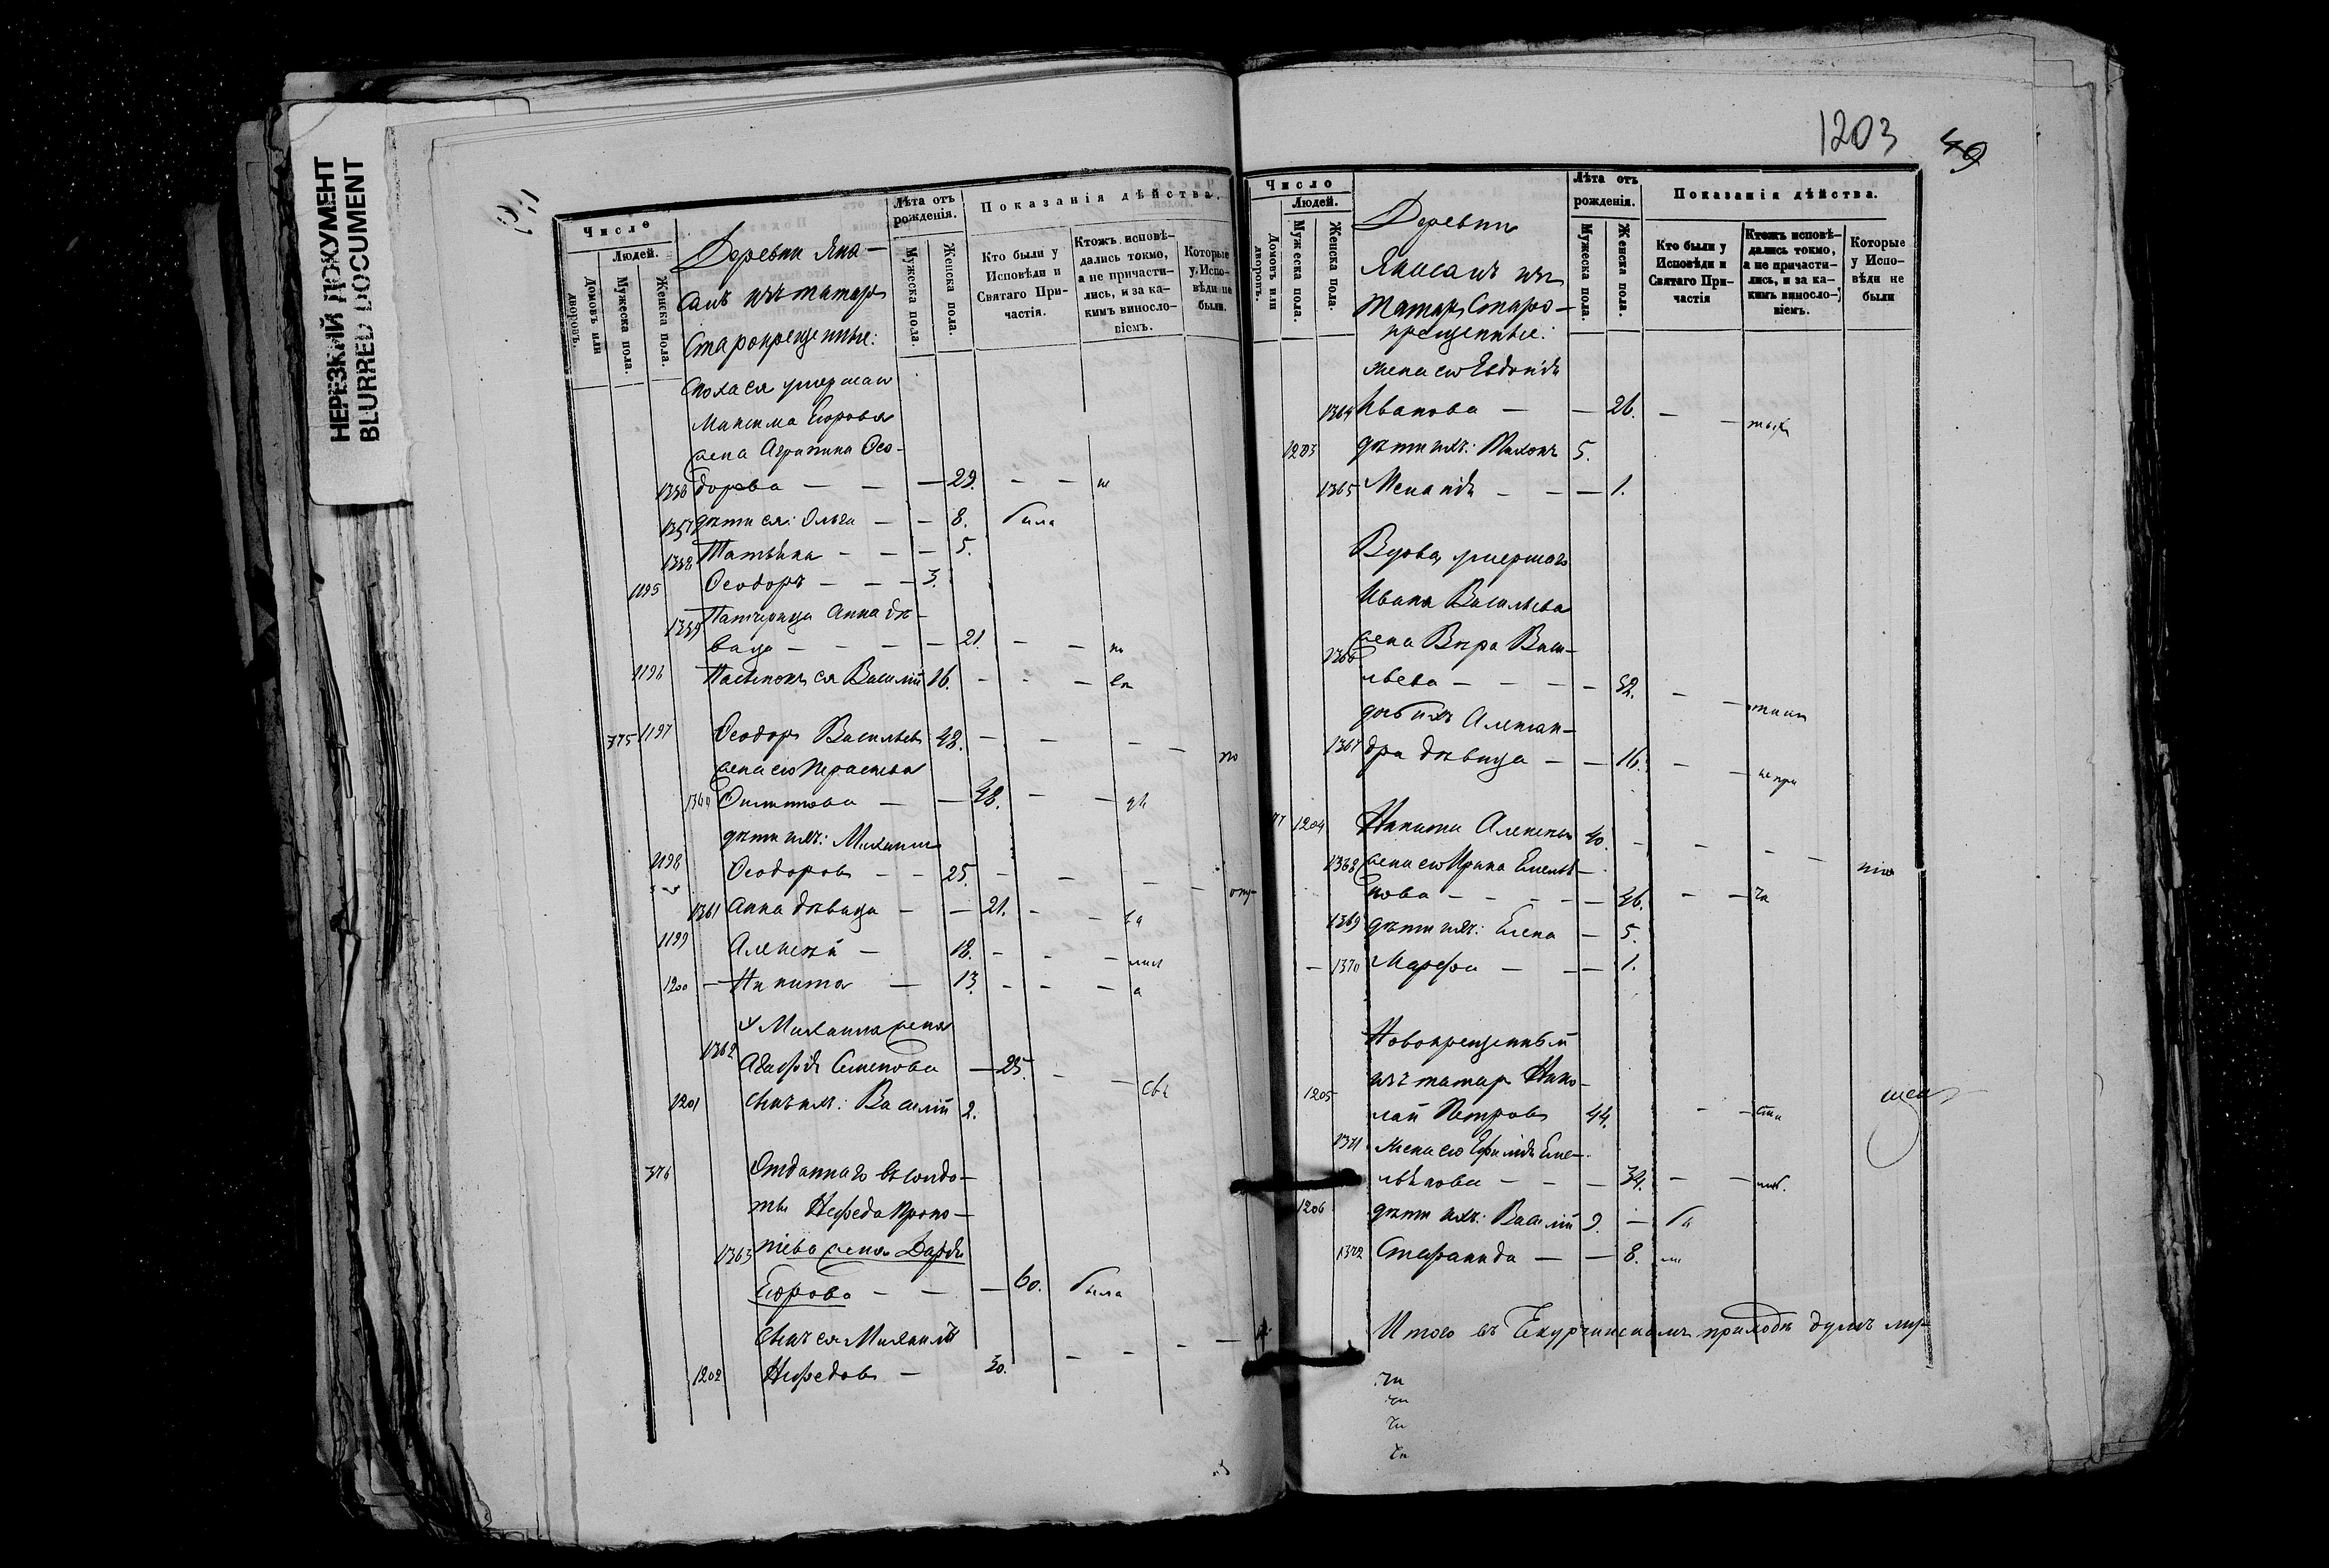 НЕРЕЗКИЙ ДОКУМЕНТ
BLURRED DOCUMENT
Число
Людей.
Домовъ или дворовъ.
Мужеска пола.
Женска пола.
Деревни Яна-
салъ изъ татаръ
Старокрещенные:
Лѣта отъ рожденія.
Мужеска пола.
Женска пола.
Показанія дѣйства.
Кто были у Исповѣди и Святаго Причастія.
Ктожъ исповѣ-
дались токмо,
а не причасти-
лись, и за ка-
кимъ виносло-
віемъ.
Которые
у Испо-
вѣди не
были.
умершаго
Максима Егорова
жена Агрипина Ѳео-
1356 дорова — — — 29. — —
1357 дѣти ея: Ольга — — 8. была
1358 Татьяна — — — 5.
1195 Ѳеодоръ — — — 3.
1359 Патчерица Анна дѣ-
вица — — — — 21. — —
1196 Пасынокъ ея Василій 16. — — —
375 1197 Ѳеодоръ Васильевъ 48. — — — —
жена его
1360 Филиппова — — 48. — —
дѣти ихъ: Михаилъ
1198 Ѳеодоровъ — — 25. — — — —
1361 Анна дѣвица — — 21. — —
1199 Алексѣй — 18. — — —
1200 — Никита — 13. — — —
у Михаила жена
1362 Агафія Семенова — 25. — —
1201 сынъ их: Василій 2.
376 Отданнаго въ солда-
ты Нефеда Проко-
1363 піева жена Дарья
Егорова — — — 60. была
сынъ ея Михаилъ
1202 Нефедовъ — 30. — — — —
1203 49
Число
Людей.
Домовъ или дворовъ.
Мужеска пола.
Женска пола.
Деревни
Янасалъ изъ
татаръ Старо-
крещенные:
Лѣта отъ рожденія.
Мужеска пола.
Женска пола.
Показанія дѣйства.
Кто были у
Исповѣди и
Святаго При-
частія
Ктожъ исповѣ-
дались токмо,
а не причасти-
лись, и за ка-
кимъ виносло-
віемъ.
Которые
у Испо-
вѣди не
были
жена его Евдокія
1364 Иванова — — 26. — —
1203 дѣти ихъ: 5.
1365 — — — 1.
Вдова, умершаго
Ивана Васильева
1366 жена Вѣра Васи-
льева — — — — 52. — —
дочь ихъ Алексан-
1367 дра дѣвица — — 16. — —
77 1204 Никита Алексѣевъ 40. — — — —
1368 жена его Ирина Емель-
нова — — — — — 36. — —
1369 дѣти ихъ: Елена — 5.
— 1370 Марфа — — — 1.
Новокрещенный
изъ татаръ Нико-
1205 лай Петровъ 44. — —
1371 жена его Еме-
льянова — — — 34. — —
1206 дѣти ихъ: Василій 9. —
1372 Стефанида — — 8.
Итого въ приходѣ душъ му-